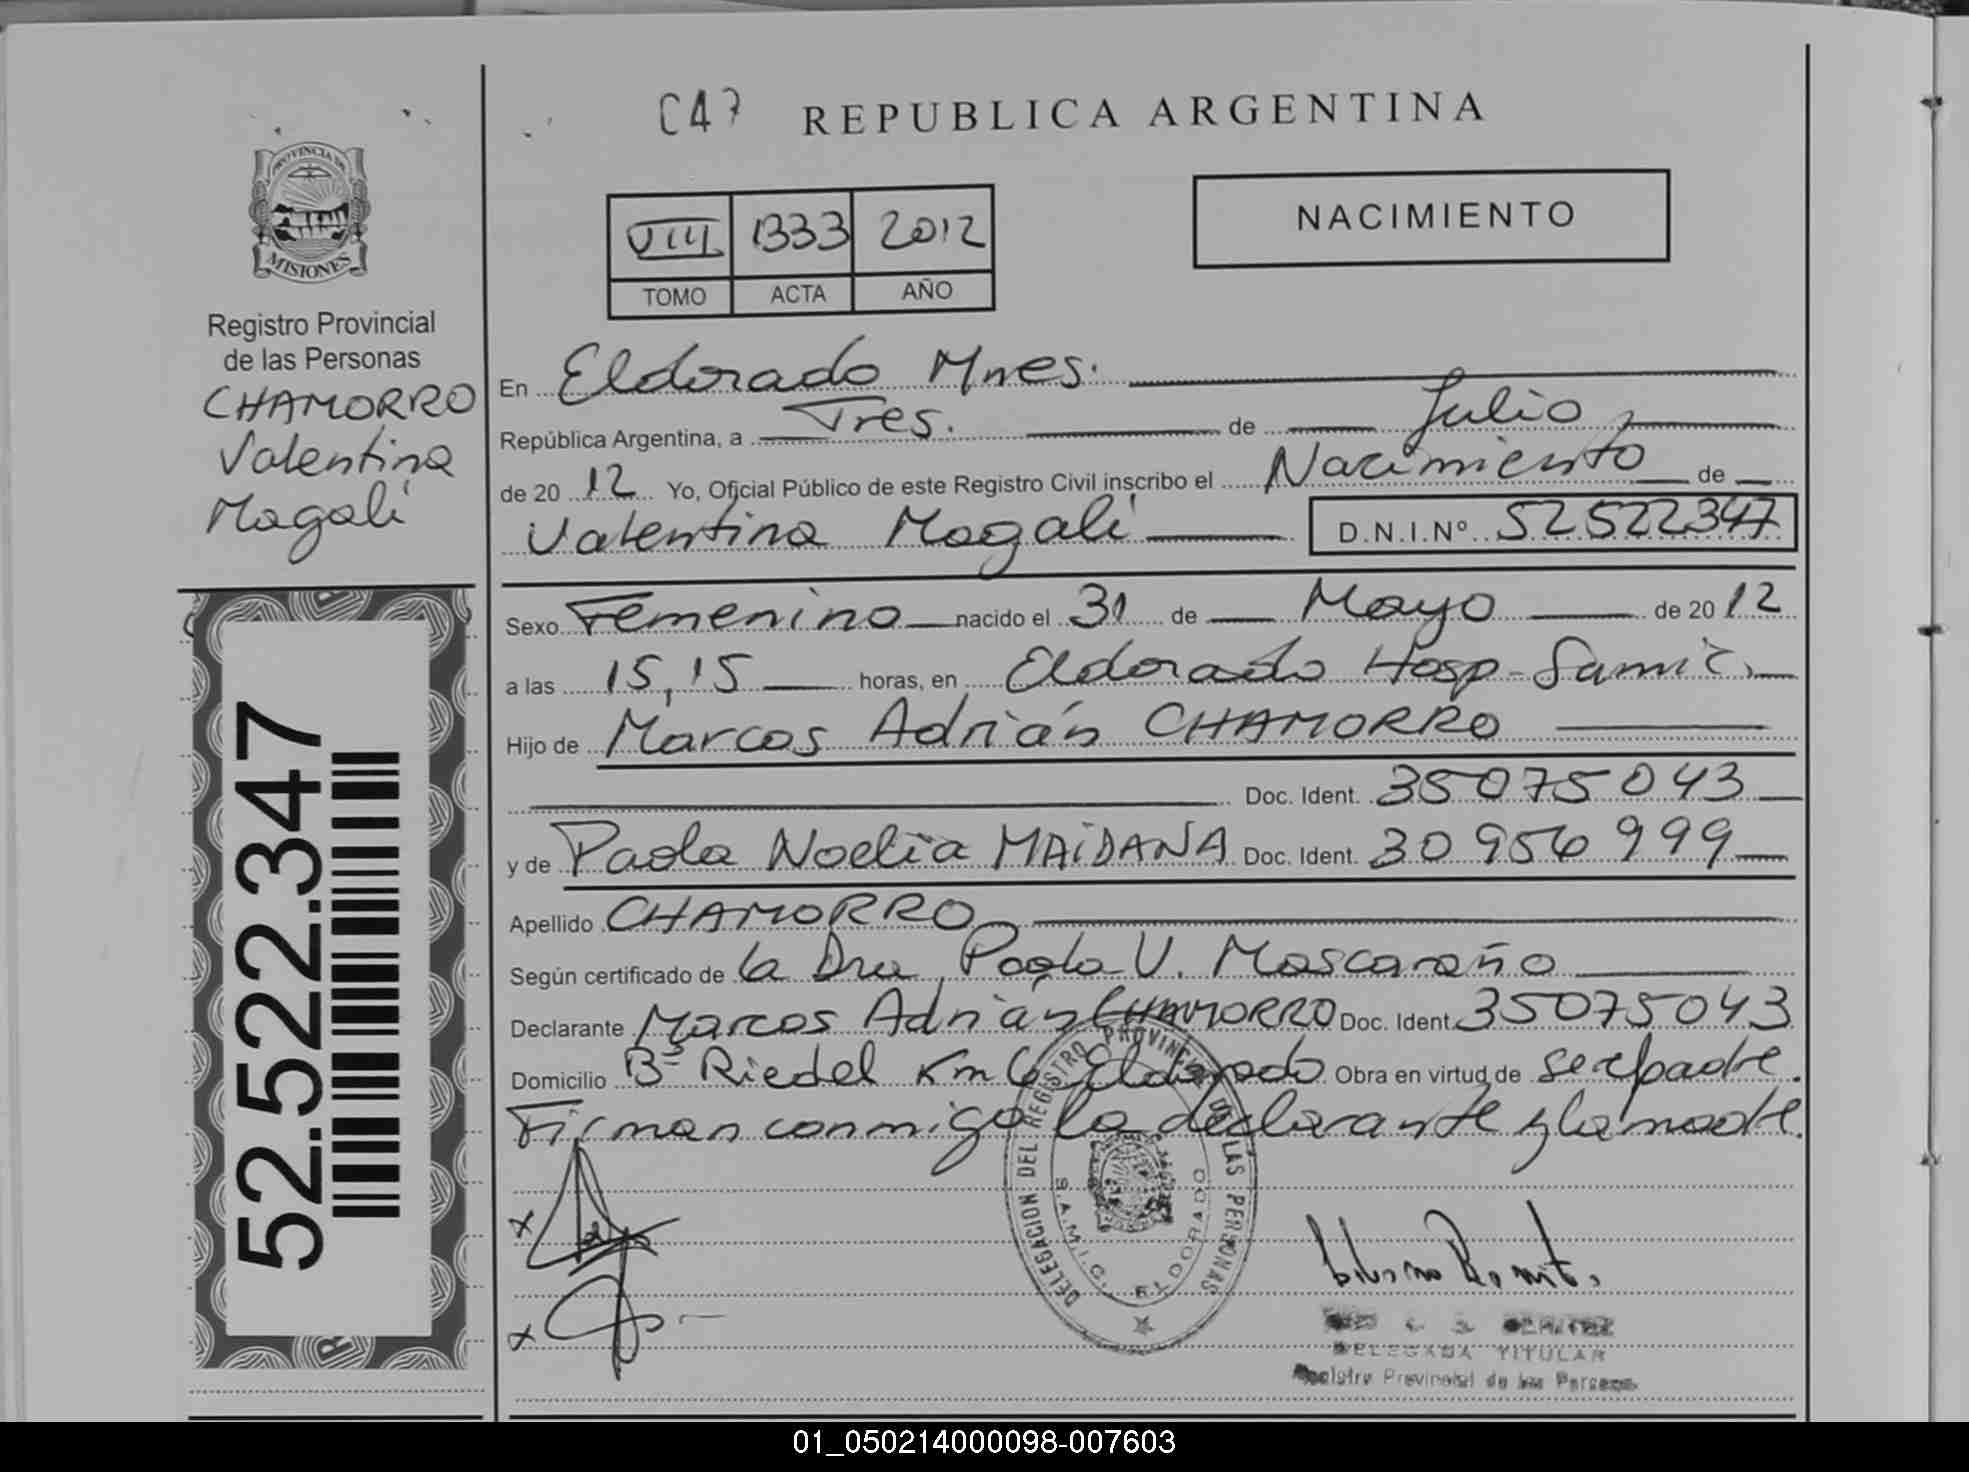 C47 REPUBLICA ARGENTINA
PROVINCIA DE
MISIONES
Registro Provincial
de las Personas
CHAMORRO
Valentina
Magalí
52.522.347
VIII 1333 2012
TOMO ACTA AÑO
NACIMIENTO
En Eldorado Mnes.
República Argentina, a Tres. de Julio
de 20 12 Yo, Oficial Público de este Registro Civil inscribo el Nacimiento de
Valentina Magalí D.N.I.Nº 52522347
Sexo Femenino nacido el 31 de Mayo de 20 12
a las 15,15 horas, en Eldorado Hosp-Samic,
Hijo de Marcos Adrián CHAMORRO
Doc. Ident. 35075043
y de Paola Noelia MAiDANA Doc. Ident. 30956999
Apellido CHAMORRO
Según certificado de la Dra Paola V. Mascaraño
Declarante Marcos Adrián CHAMORRO Doc. Ident. 35075043
Domicilio Bº Riedel Km 6 Eldorado Obra en virtud de ser padre.
Firman conmigo la declarante y la madre.
DELEGACION DEL REGISTRO PROVINCIAL DE LAS PERSONAS
S.A.M.I.C. ELDORADO
BENITEZ
DELEGADA TITULAR
Registro Provincial de las Personas
01_050214000098-007603